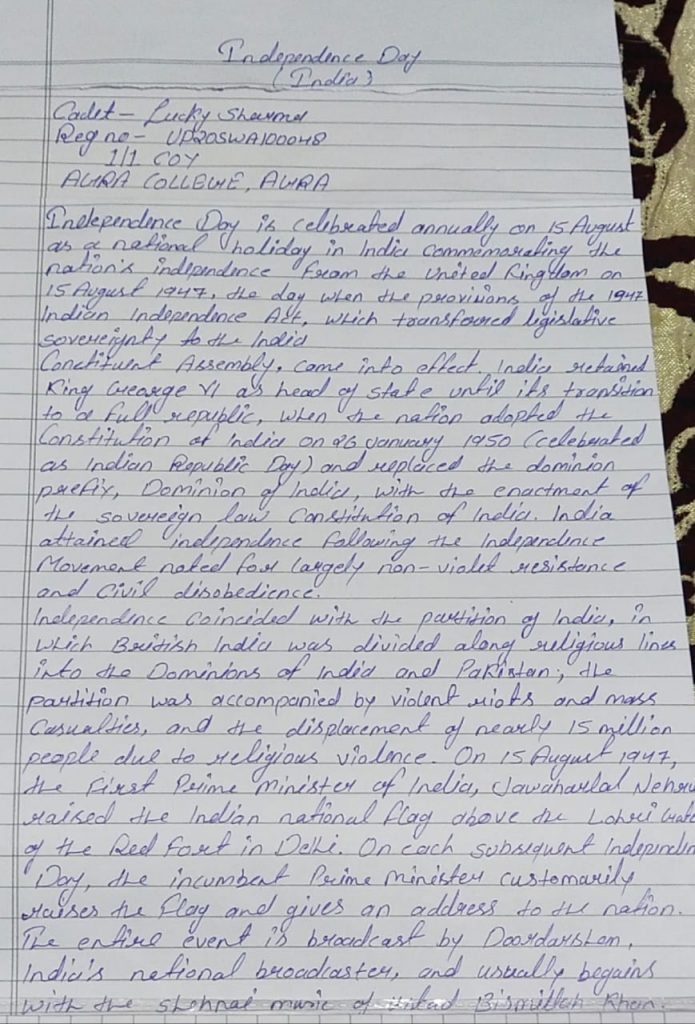 Independence Day
(India)
Cadet - Lucky Sharma
Reg no - UP20SWA100048
1/1 COY
AGRA COLLEGE, AGRA
Independence Day is celebrated annually on 15 August
as a national holiday in India commemorating the
nation's independence from the United Kingdom on
15 August 1947, the day when the provisions of the 1947
Indian Independence Act, which transferred legislative
sovereignty to the India
Constituent Assembly, came into effect. India retained
King George VI as head of state until its transition
to a full republic, when the nation adopted the
Constitution of India on 26 January 1950 (celebrated
as Indian Republic Day) and replaced the dominion
prefix, Dominion of India, with the enactment of
the sovereign law Constitution of India. India
attained independence following the Independence
Movement noted for largely non-violet resistance
and Civil disobedience.
Independence coincided with the partition of India, in
which British India was divided along religious lines
into the Dominions of India and Pakistan; the
partition was accompanied by violent riots and mass
Casualties, and the displacement of nearly 15 million
people due to religious violence. On 15 August 1947,
the First Prime Minister of India, Jawaharlal Nehru
raised the Indian national flag above the Lohri Gate
of the Red Fort in Delhi. On each subsequent Independen
Day, the incumbent Prime Minister customarily
raises the flag and gives an address to the nation.
The entire event is broadcast by Doordarshan,
India's national broadcaster, and usually begains
with the shehnai music of Ustad Bismillah Khan.